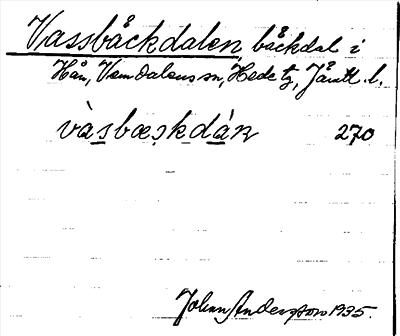 Vassbäckdalen bäckdal i
Hån, Vemdalens sn, Hede tg, Jämtl. l.
vàsbæskdán 270
Johan Andersson 1935.